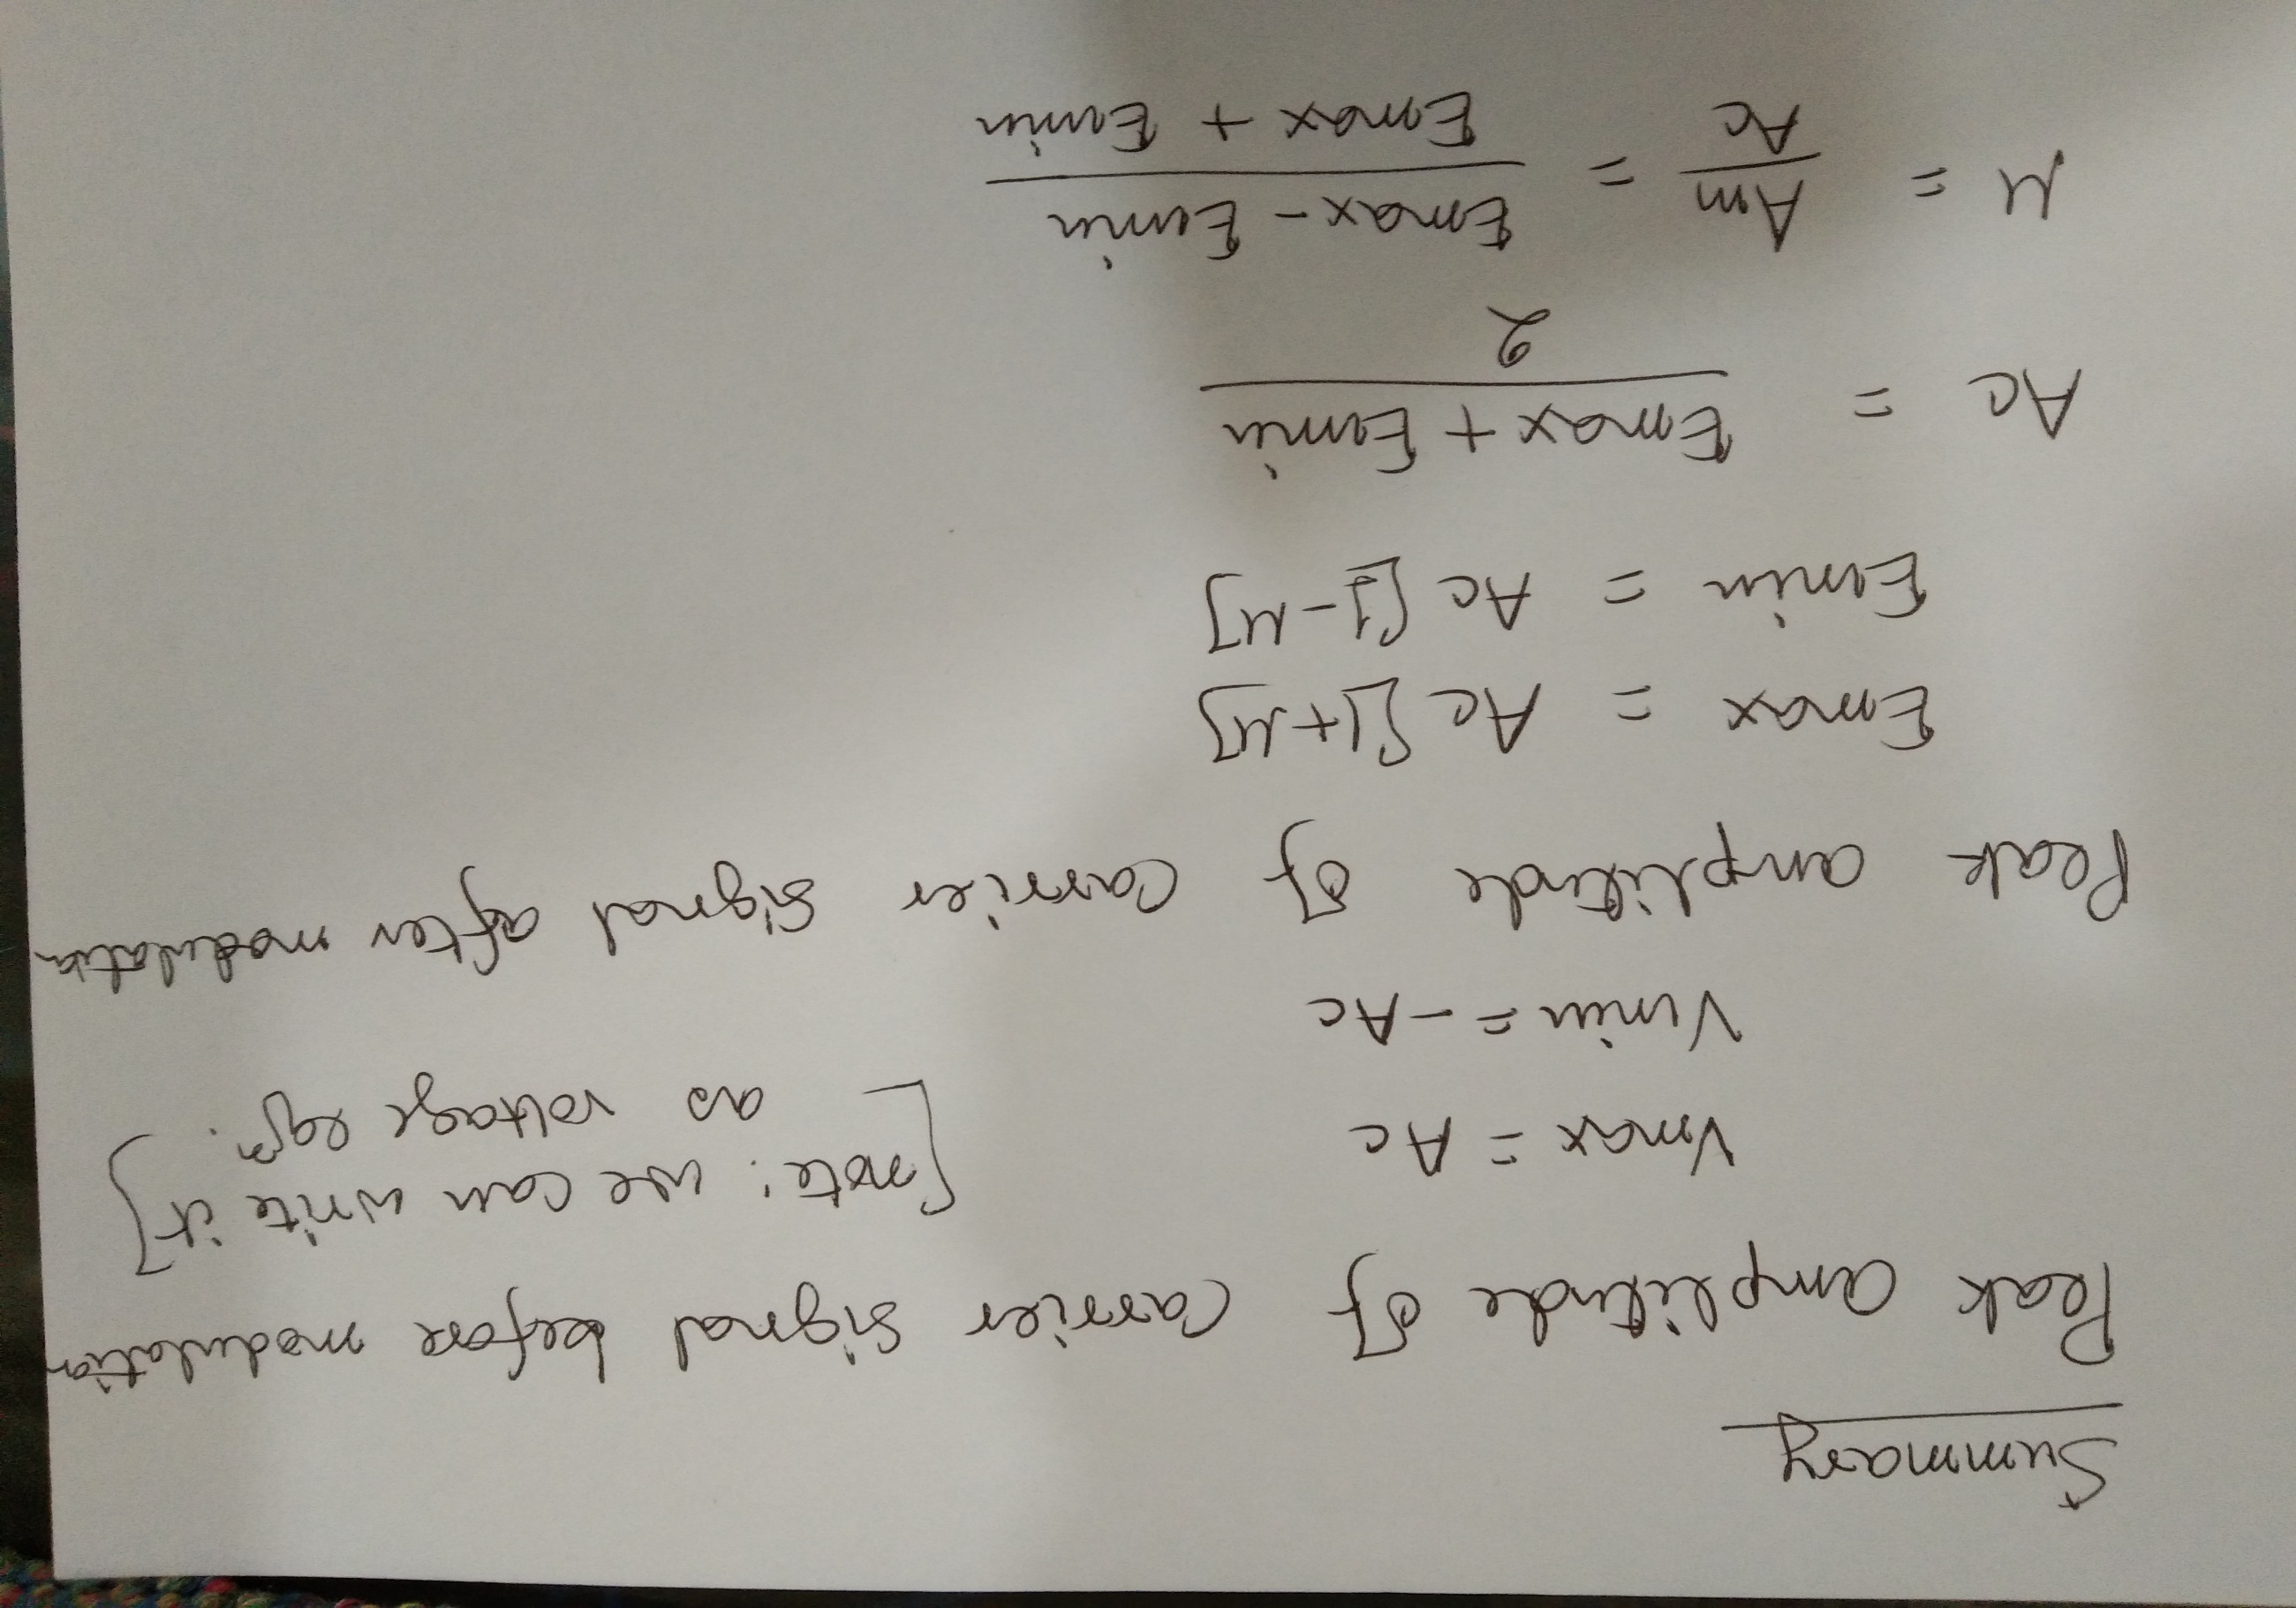 Summary
Peak amplitude of carrier signal before modulation
Vmax = Ac
[note: we can write it
as voltage eqn.]
Vmin = -Ac
Peak amplitude of carrier signal after modulation
Emax = Ac [1+μ]
Emin = Ac [1-μ]
Ac = Emax + Emin / 2
μ = Am / Ac = Emax - Emin / Emax + Emin